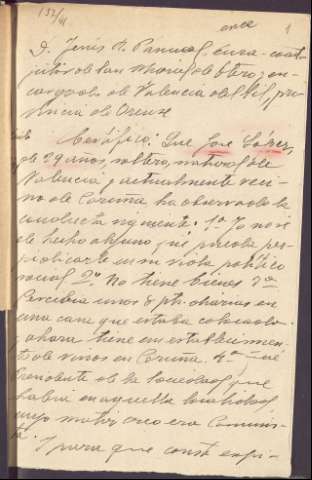 132/41
once 1
D. Jesús A. Pánuco, cura-coad-
jutor de San de Otero, en-
cargado de Valencia del Sil, pro-
vincia de Orense
Certifico: Que José López,
de 29 años, soltero, natural de
Valencia y actualmente veci-
no de Coruña ha observado la
conducta siguiente: 1º Yo no sé
de hecho alguno que pueda per-
judicarle en su vida político
social 2º No tiene bienes 3º
Percibía unos 8 pts. diarias en
una casa que estaba colocado.
y ahora tiene un establecimien-
to de vinos en Coruña. 4º Fué
Presidente de la Sociedad que
había en aquella localidad
cuyo matiz creo era Comunis-
ta.
Y para que conste expi-